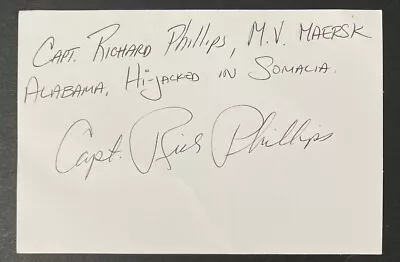 CAPT. RICHARD PHILLIPS, M.V. MAERSK
ALABAMA, HI-JACKED IN SOMALIA.
Capt. Rich Phillips